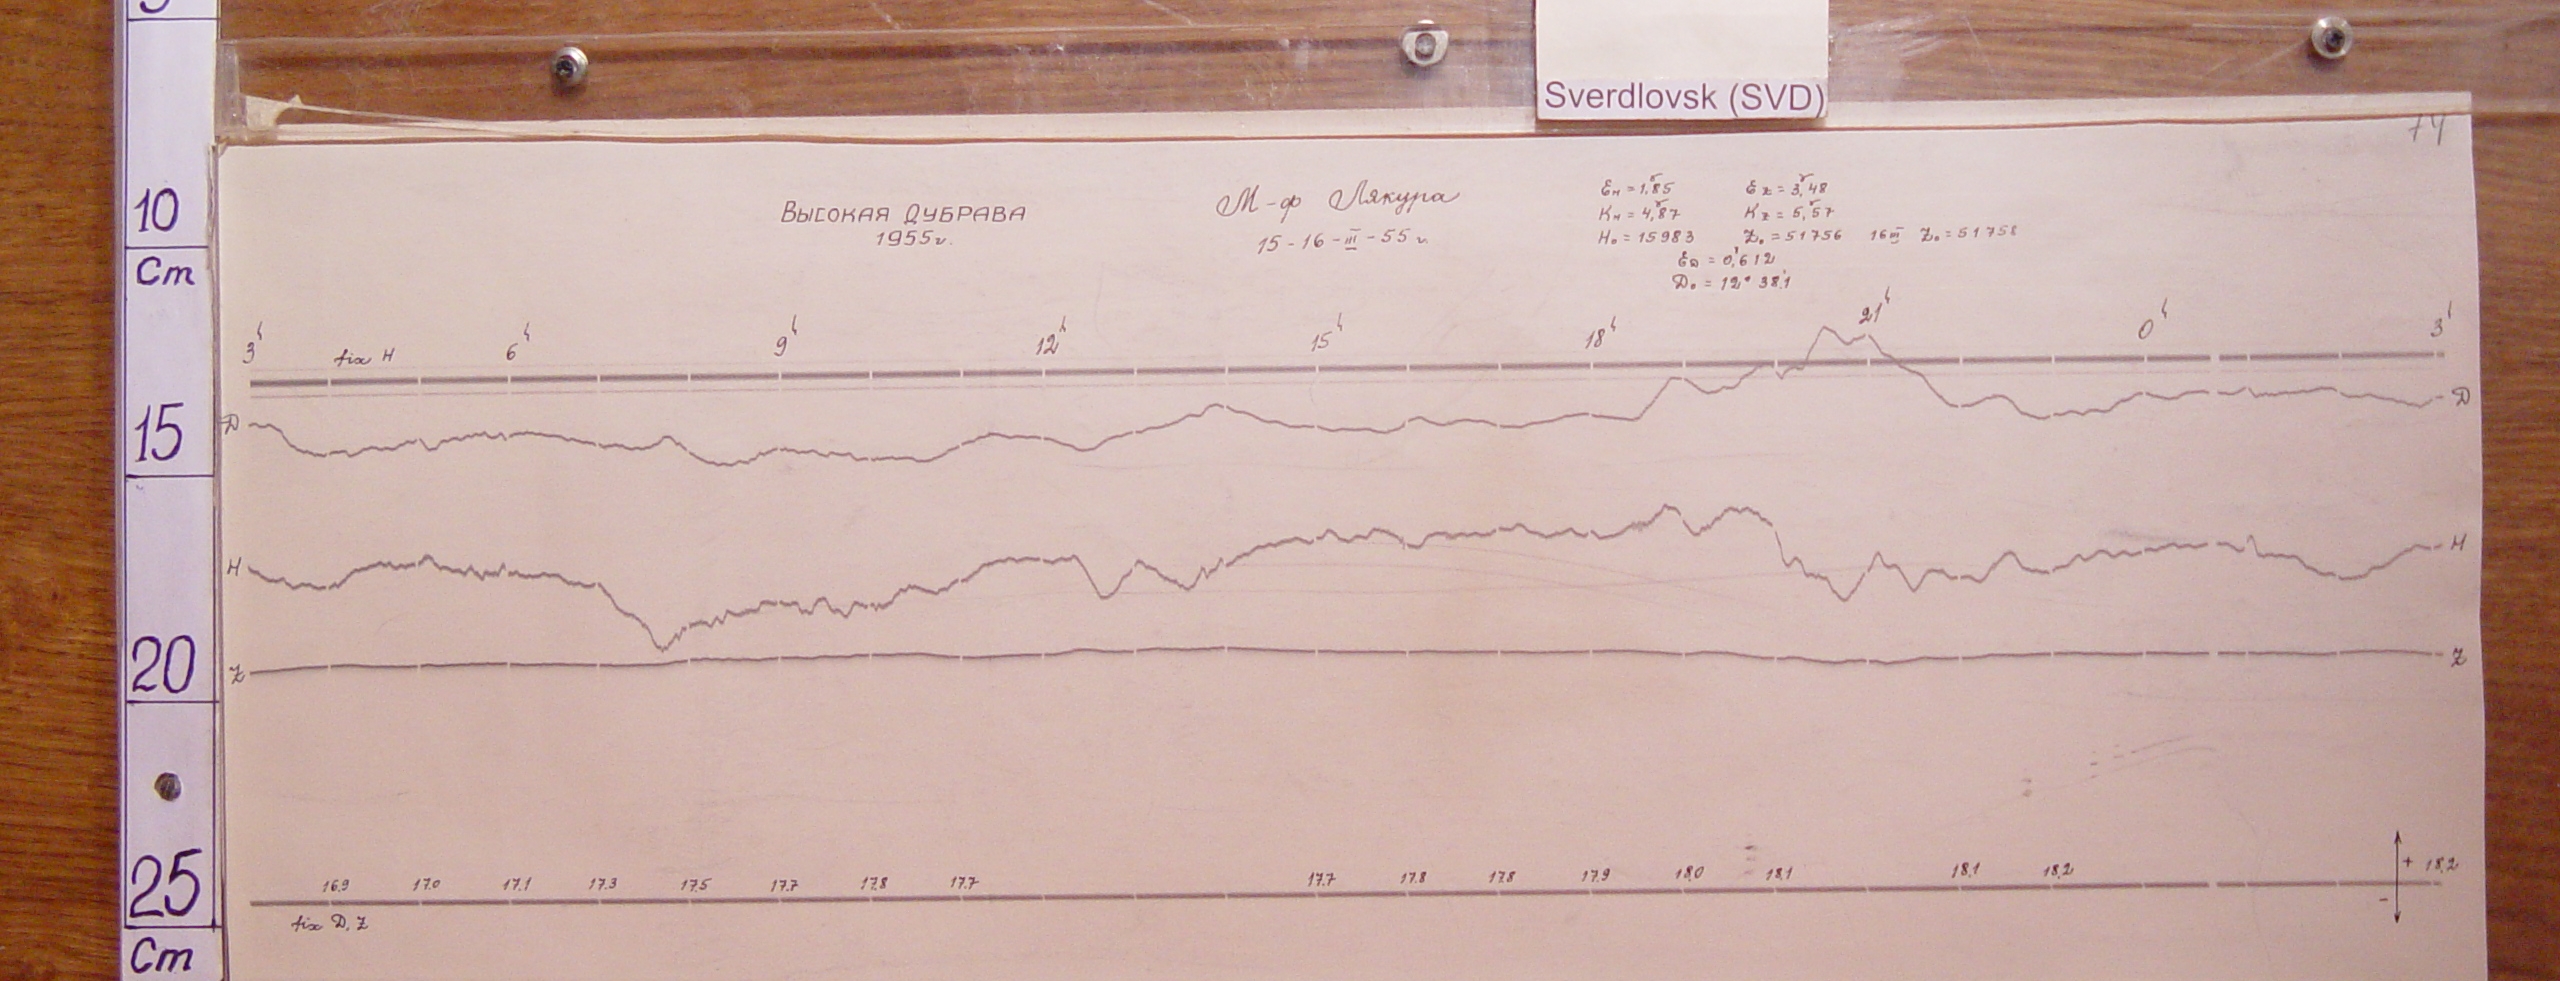 Sverdlovsk (SVD)
74
10
Cm
15
20
25
Cm
ВЫСОКАЯ ДУБРАВА
1955 г.
М-ф Лякура
15-16-III-55 г.
Ɛн = 1,ᵞ85 Ɛz = 3,ᵞ48
Kн = 4,ᵞ87 Kz = 5,ᵞ57
H₀ = 15983 Z₀ = 51756 16 III Z₀ = 51758
ƐD = 0,'612
D₀ = 12° 38,'1
3ʰ fix H 6ʰ 9ʰ 12ʰ 15ʰ 18ʰ 21ʰ 0ʰ 3ʰ
D D
H H
Z Z
16.9 17.0 17.1 17.3 17.5 17.7 17.8 17.7 17.7 17.8 17.8 17.9 18.0 18.1 18.1 18.2 + 18.2
-
fix D, Z